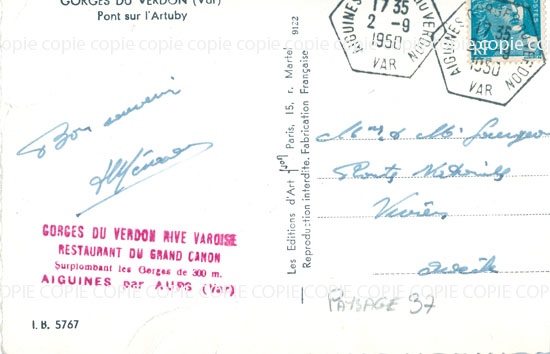 GORGES DU VERDON (Var)
Pont sur l'Artuby
Bon souvenir
GORGES DU VERDON RIVE VAROISE
RESTAURANT DU GRAND CANON
Surplombant les Gorges de 300 m.
AIGUINES par AUPS (Var)
I. B. 5767
Les Editions d'Art Paris, 15, r. Martel
Reproduction interdite. Fabrication Française
9122
AIGUINES
DU VERDON
17 35
2 -9
1950
VAR
AIGUINES
VERDON
35
-9
1950
VAR
RF
Route Nationale
Viviers
PAYSAGE 37
copie copie copie copie copie copie copie copie copie